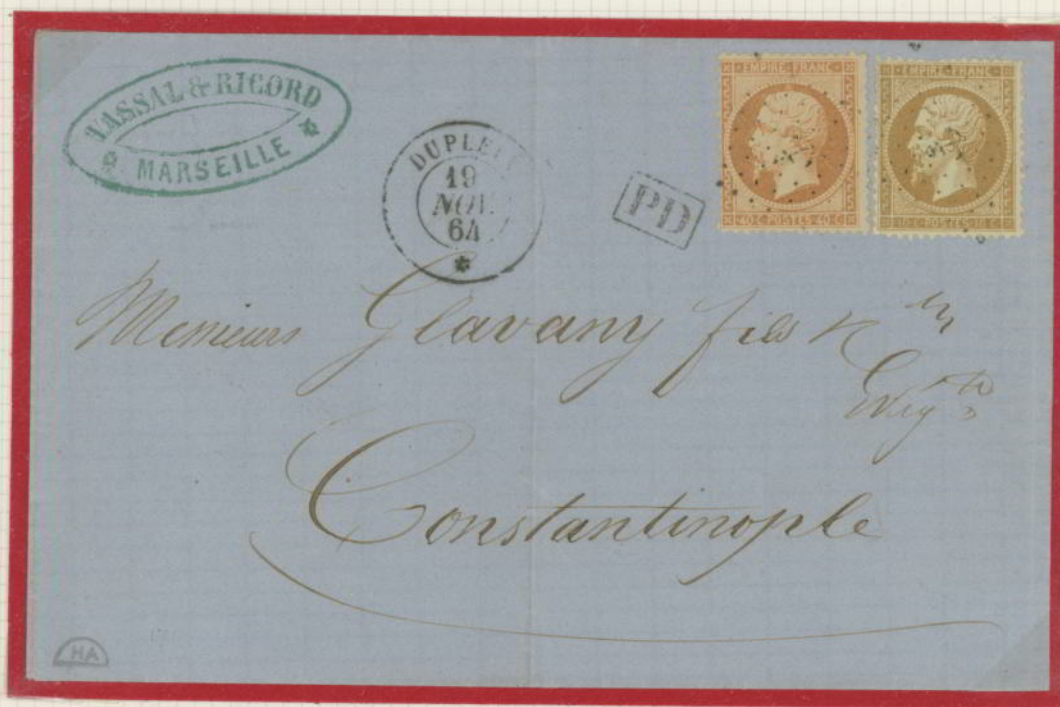 VASSAL & RICORD
MARSEILLE
19
NOV.
64
PD
EMPIRE FRANC
40 C POSTES 40 C
EMPIRE FRANC
10 C POSTES 10 C
Messieurs Glavany fils &
Constantinople
HA